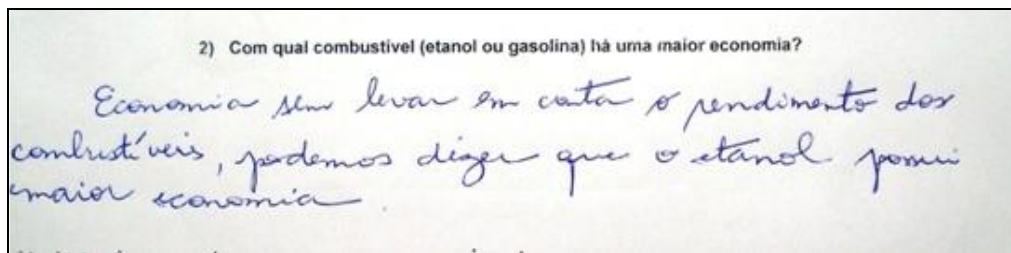 2) Com qual combustível (etanol ou gasolina) há uma maior economia?
Economia sem levar em conta o rendimento dos
combustíveis, podemos dizer que o etanol possui
maior economia.